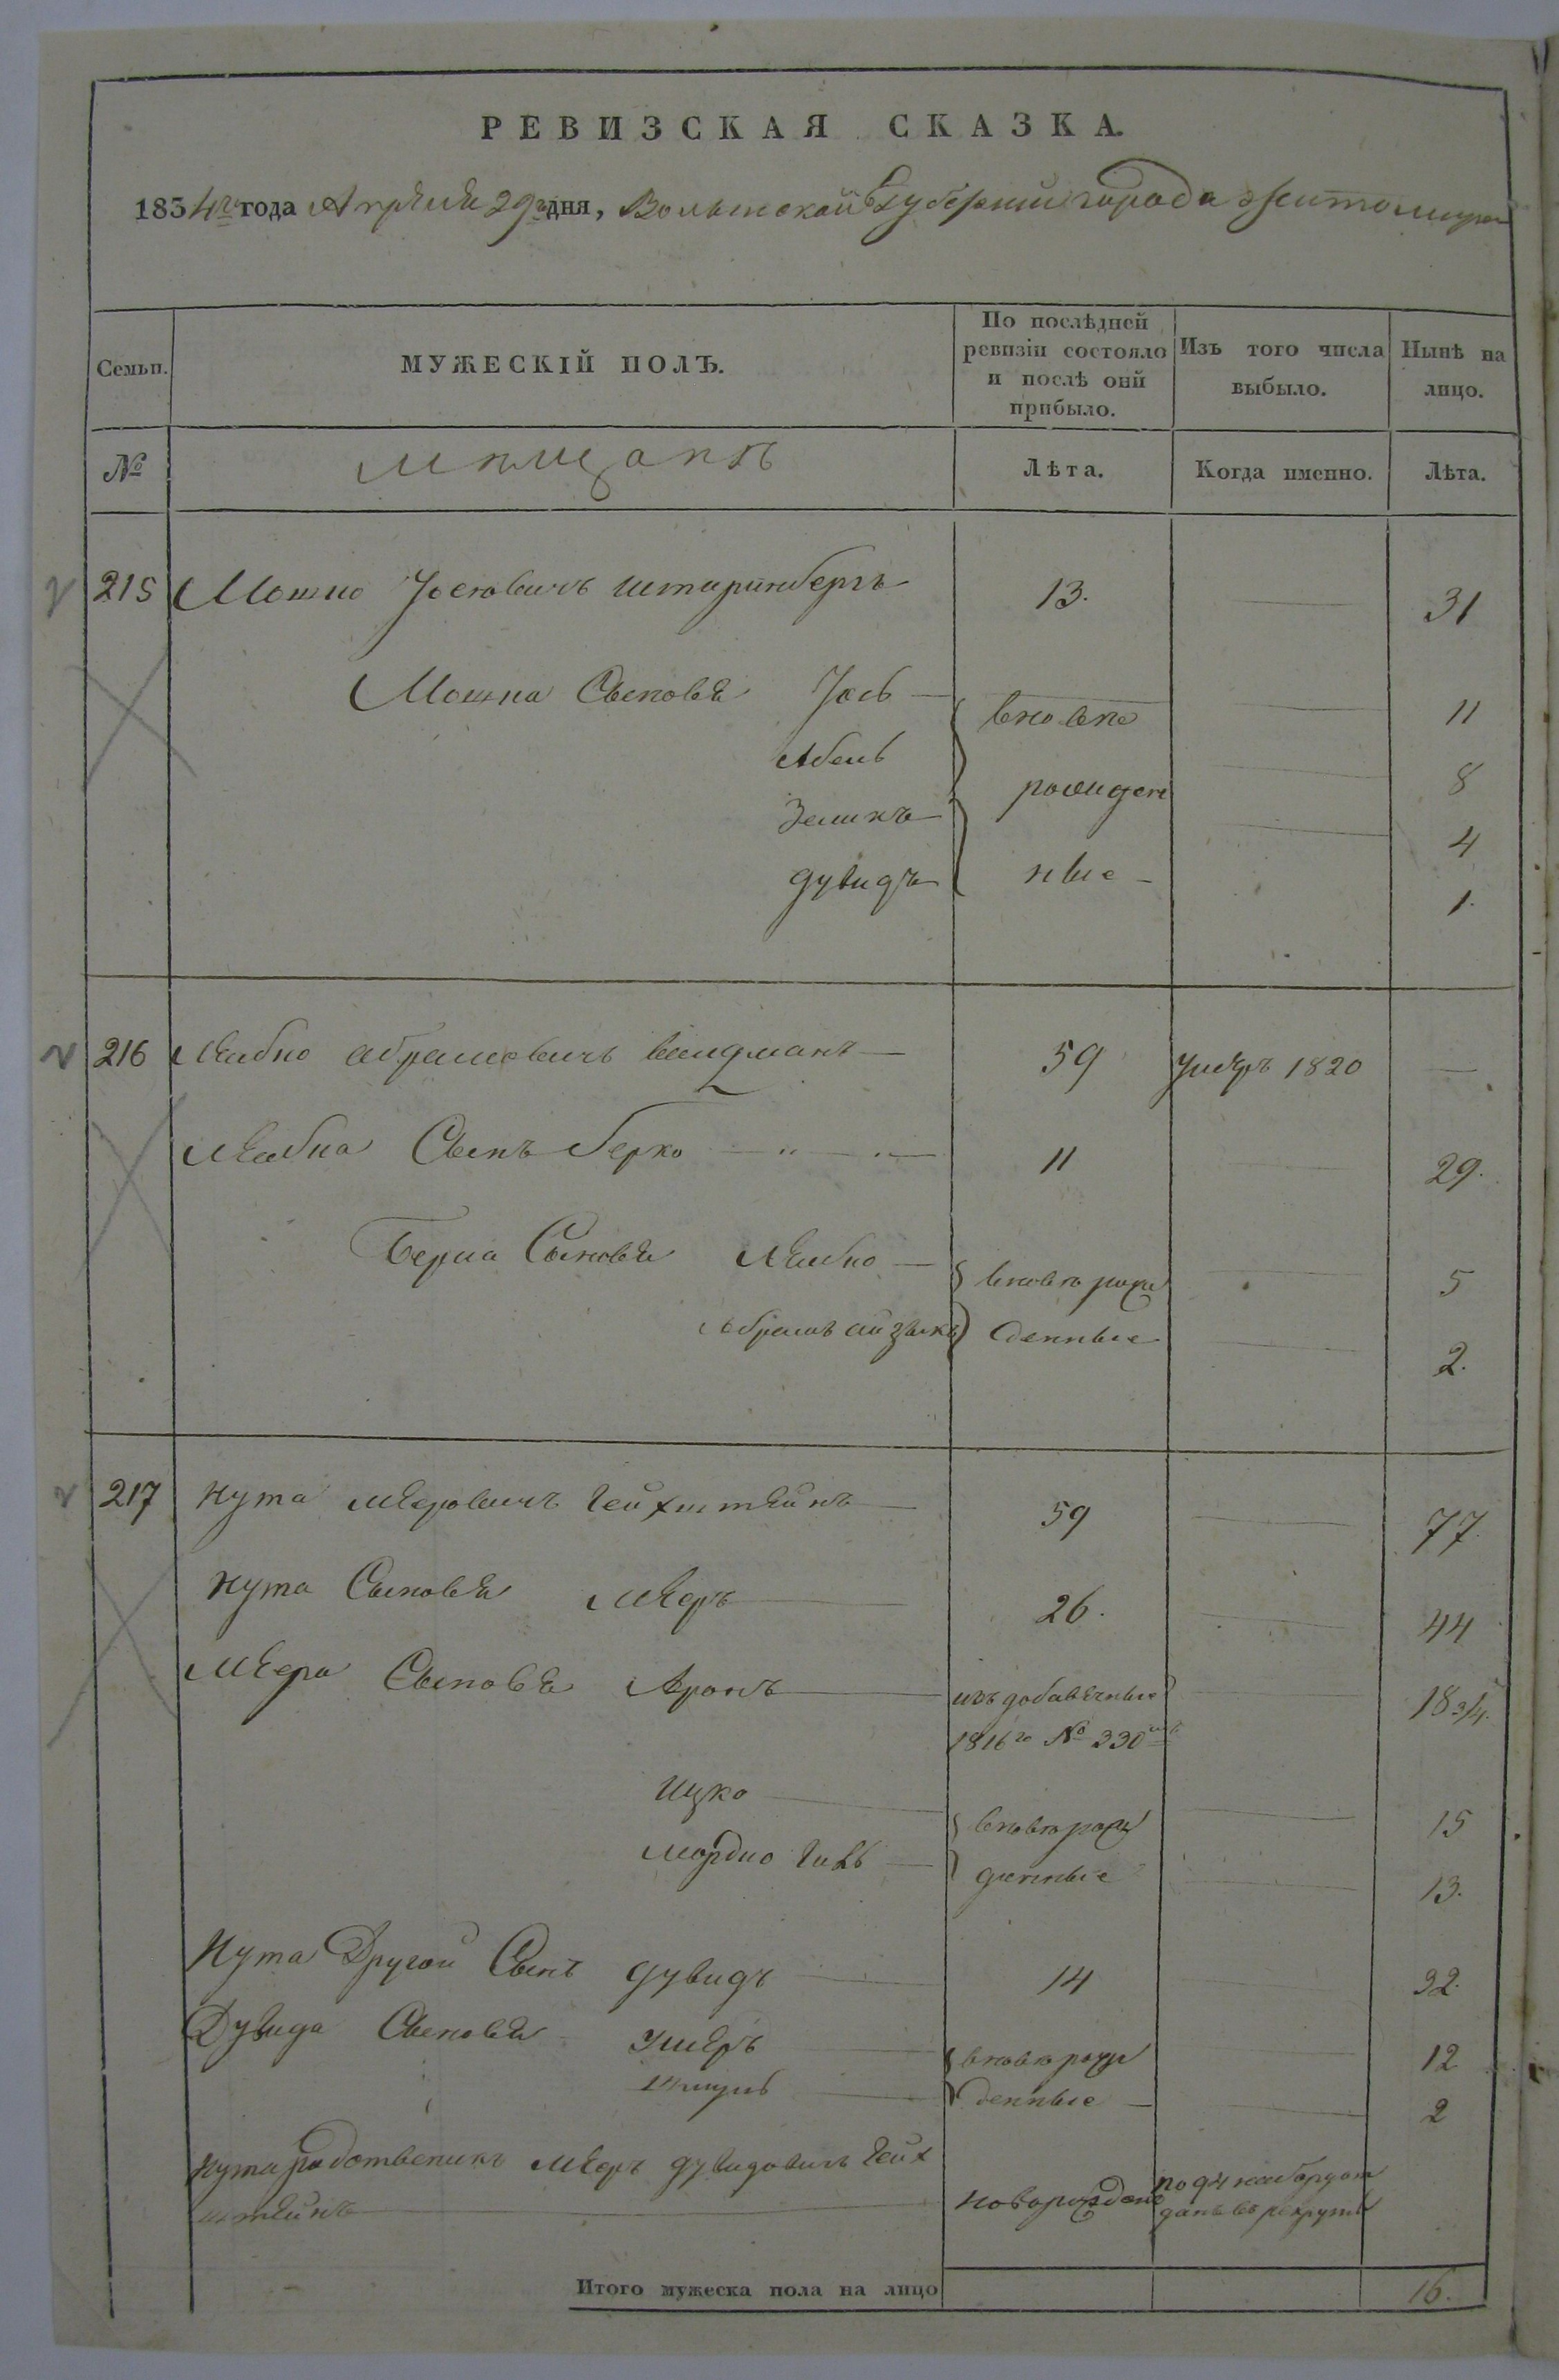 РЕВИЗСКАЯ СКАЗКА.
1834го года Апреля 29 дня, Волынской Губернии города Житомира
Семьи. МУЖЕСКІЙ ПОЛЪ. По послѣдней ревизіи состояло и послѣ оній прибыло. Изъ того числа выбыло. Нынѣ на лицо.
№ мещанъ Лѣта. Когда именно. Лѣта.
215 Мошко Іосіовичъ Штаринбергъ 13. 31
Мошка Сыновья Іось вновь 11
Абель рожден 8
Зеликъ 4
дувидъ ные 1.
216 Лейбко абрамовичъ вайдманъ 59 умеръ 1820
Лейбка Сынъ берко 11 29.
Берка Сыновья Лейбко вновь рож 5
абрамъ айзыкъ денные 2.
217 Нута меровичъ Гейхштейнъ 59 77
Нута Сыновья меръ 26. 44
мера Сыновья Аронъ изъ добавочные 18 3/4.
1816го № 330
Ицко вновь рож 15
мордко денные 13.
Нута Другой Сынъ дувидъ 14 32.
Дувида Сыновья Умеръ вновь рож 12
денные 2
Нута родственикъ меръ дувидовичъ Гейх
штейнъ новорожден
Итого мужеска пола на лицо 16.